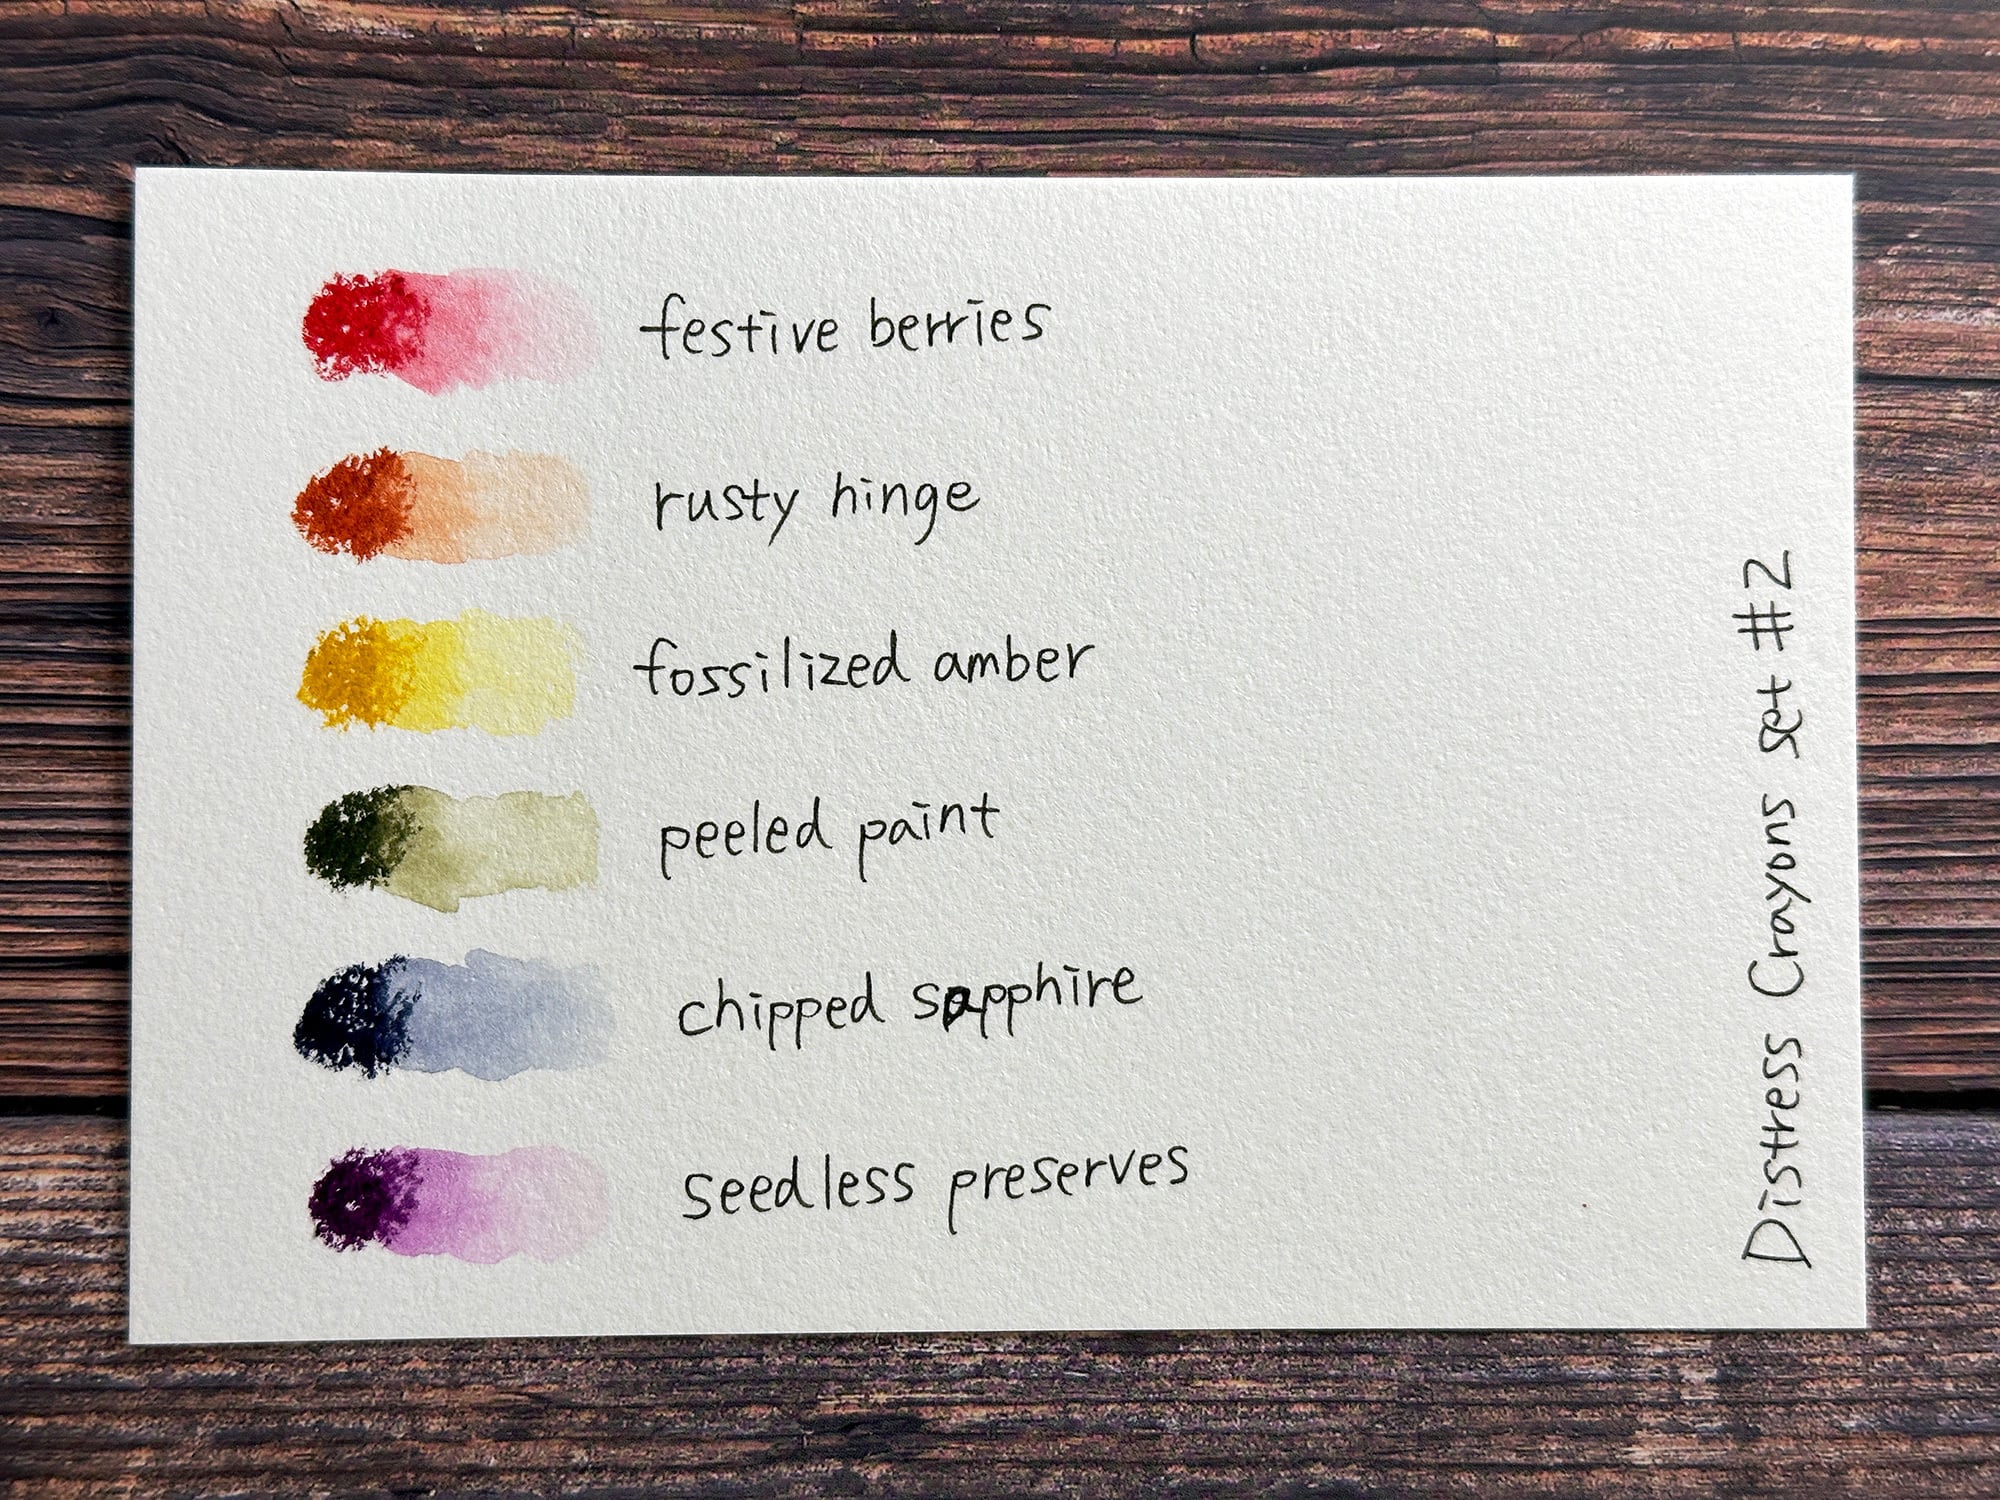 festive berries
rusty hinge
fossilized amber
peeled paint
chipped sapphire
seedless preserves
Distress Crayons set #2